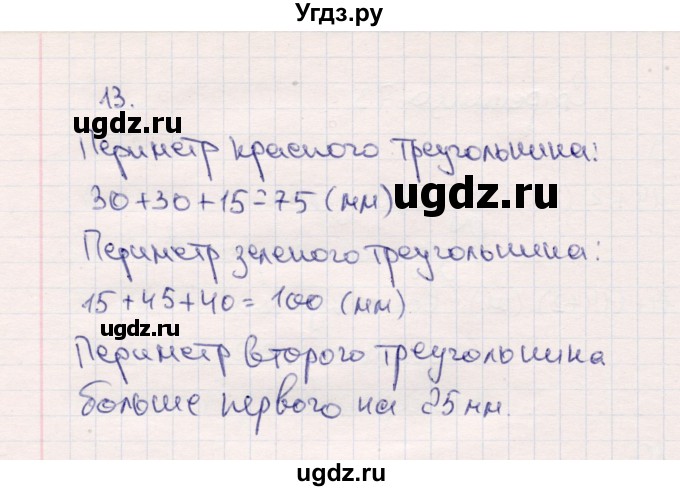 Угдз.ру
13.
ugdz.ru
Периметр красного треугольника:
30+30+15=75 (мм)
ugdz.ru
Периметр зеленого треугольника:
15+45+40=100 (мм)
ugdz.ru
Периметр второго треугольника
больше первого на 25 мм.
ugdz.ru